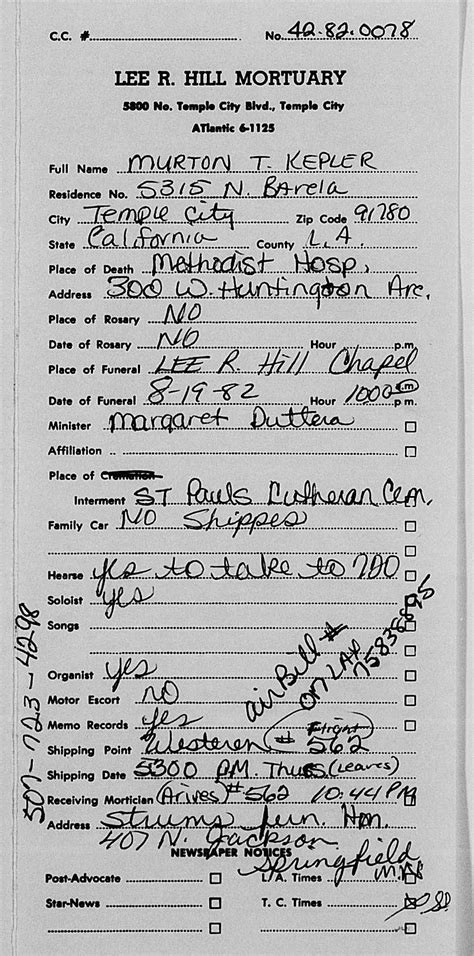 C.C. # No. 42-82-0078
LEE R. HILL MORTUARY
5800 No. Temple City Blvd., Temple City
ATlantic 6-1125
Full Name MURTON T. KEPLER
Residence No. 5315 N. Barela
City Temple City Zip Code 91780
State California County L.A.
Place of Death Methodist Hosp.
Address 300 W. Huntington Dr.
Place of Rosary NO
Date of Rosary NO Hour p.m.
Place of Funeral LEE R. Hill Chapel
Date of Funeral 8-19-82 Hour 1000 a.m. p.m.
Minister Margaret Duttera
Affiliation
Place of Cremation
Interment ST Pauls Lutheran Cem.
Family Car NO Shipped
Hearse yes to take to
Soloist yes
Songs
air Bill #
ON LAX
Organist yes
Motor Escort NO
Memo Records yes
Flight
Shipping Point Westeren # 562
Shipping Date 5300 P.M. Thurs (Leaves)
Receiving Mortician (Arives) #562 10:44 PM
Address Strums Fun. Hom.
407 N. Jackson
Springfield
MN
507-723-4298
NEWSPAPER NOTICES
Post-Advocate L.A. Times
Star-News T.C. Times